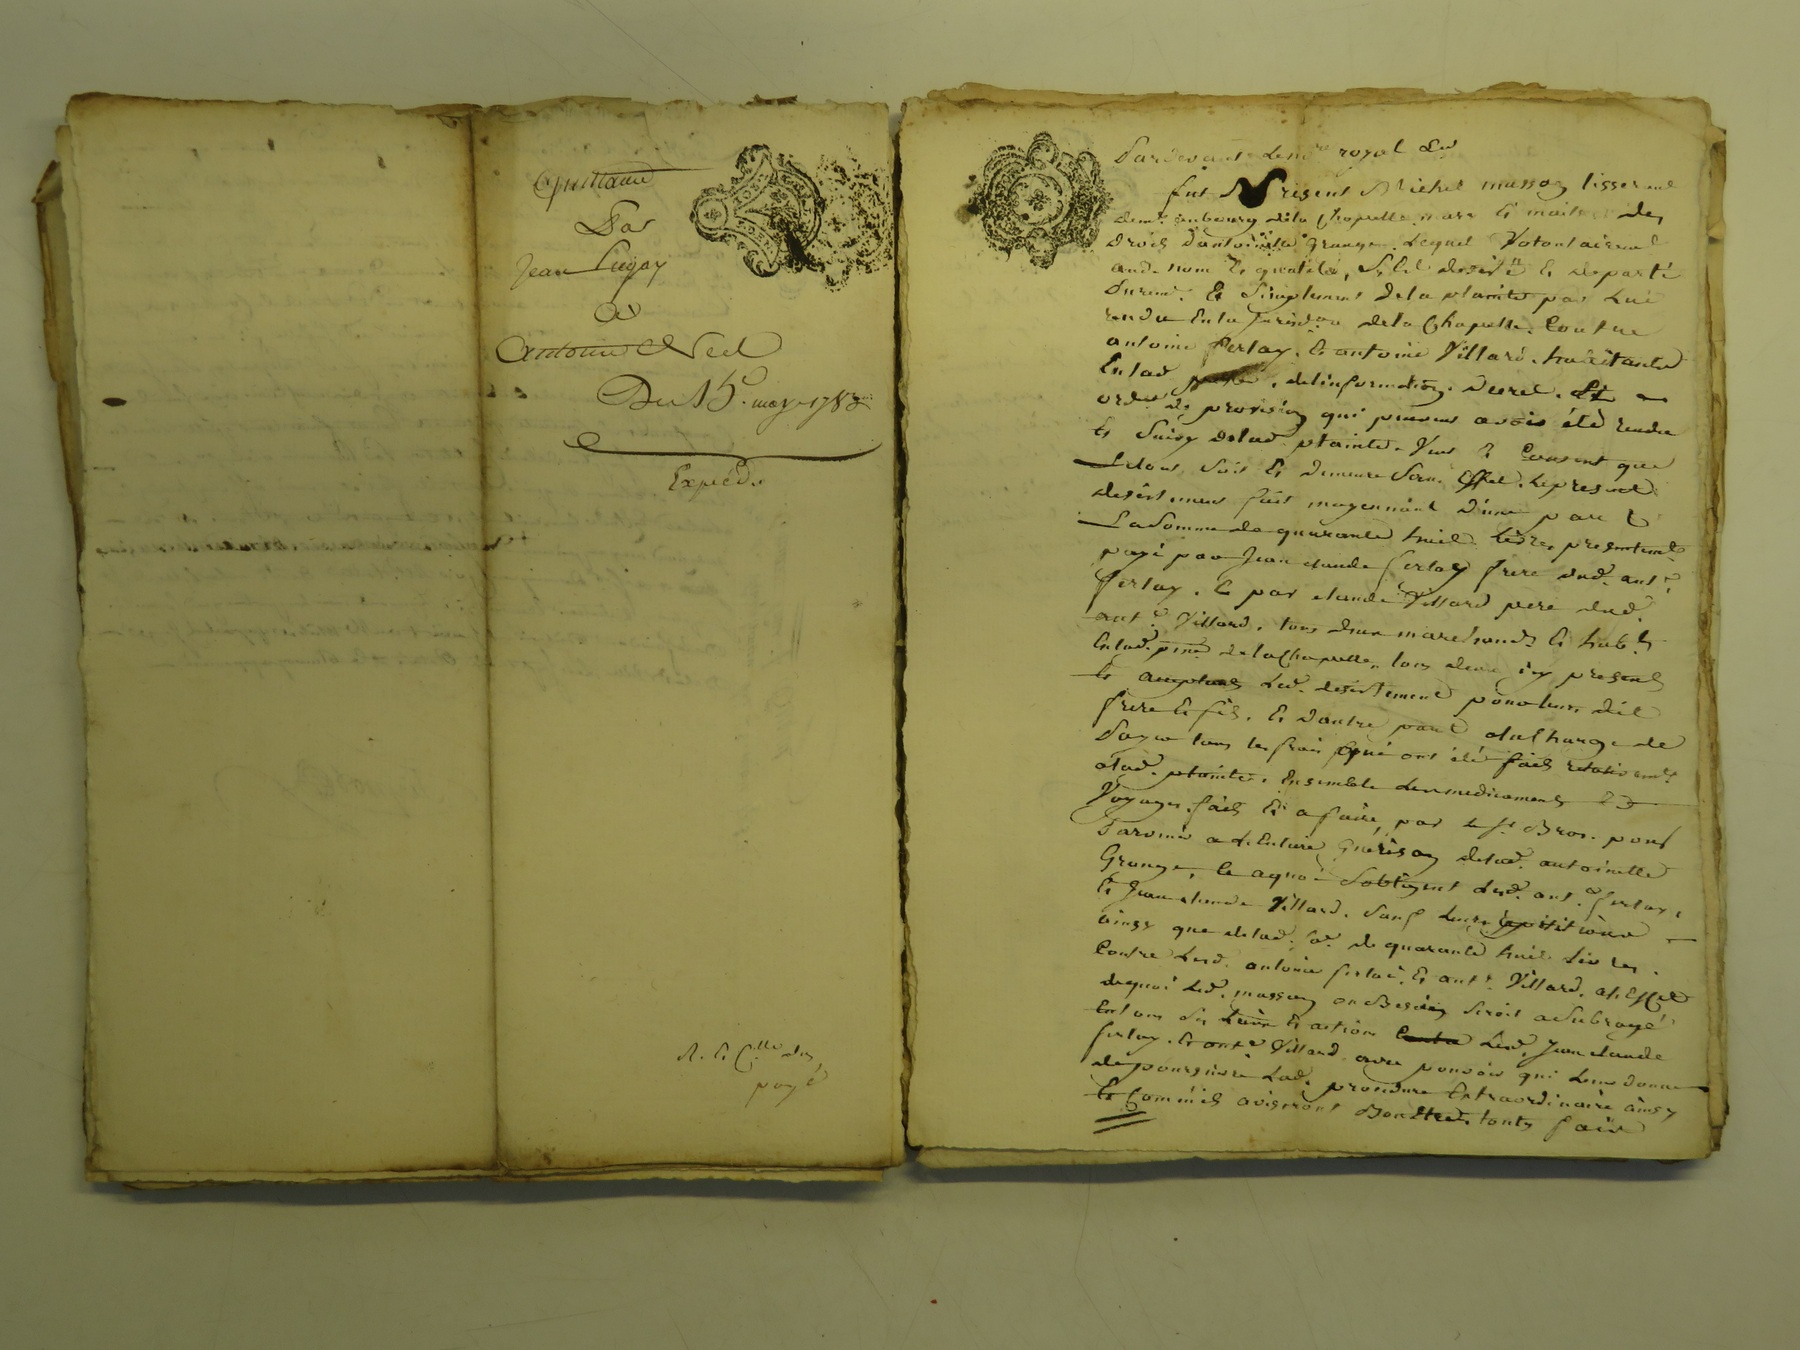 Quittance
Par
Jean Lugay
à
Antoine Néel
Du 15e may 1783
Expéd.
R. et C.lle
payé
Pardevant le no.re royal
fut Présent Michel masson tisserand
dem.t aubourg de la Chapelle mari et maitre des
droits d'antoinette Grange. Lequel Volontairement
aud. nom et qualité, s'est desisté et departi
purem.t et simplement de la plainte par Lui
rendue En la Jurisd.on de la Chapelle. Contre
antoine ferlay. et antoine Villard. habitants
En lad. de l'information. decret. Et
ord.ce de provision qui peuvent avoir été rendue
Ensuitte de lad. plainte. Veut et Consent que
Le tout soit et demeure sans Effet. Le present
desistement fait moyennant d'une part
La somme de quarante huit Livres presentement
payé par Jean claude ferlay frere dud. ant.e
ferlay. et par claude Villard pere dud.
ant.e Villard. tous deux marchands et hab.ts
En lad. de la Chapelle, tous deux icy presents
et acceptants Led. desistement pour leurs dit
frere et fils. et d'autre part a la Charge de
Payer tous les frais qui ont été faits relativem.t
a lad. plainte. Ensemble les medicaments et
Voyages faits et a faire par le S.r Bros. pour
Parvenir a l'Entiere Guérison de lad. antoinette
Grange, et a quoi s'obligent Lesd. ferlay
et Villard. sauf Leurs répétitions
ainsy que de lad. so. de quarante huit Livres.
Contre Lesd. antoine ferlai et ant.e Villard. a l'effet
de quoi Led. masson au Besoin seroit a subrogé
En tous ses droits et actions Led. Jean claude
ferlay. et Villard avec pouvoir qui Leur donne
de poursuivre Lad. procedure Extraordinaire ainsy
Et Comme ils aviseront tout fait